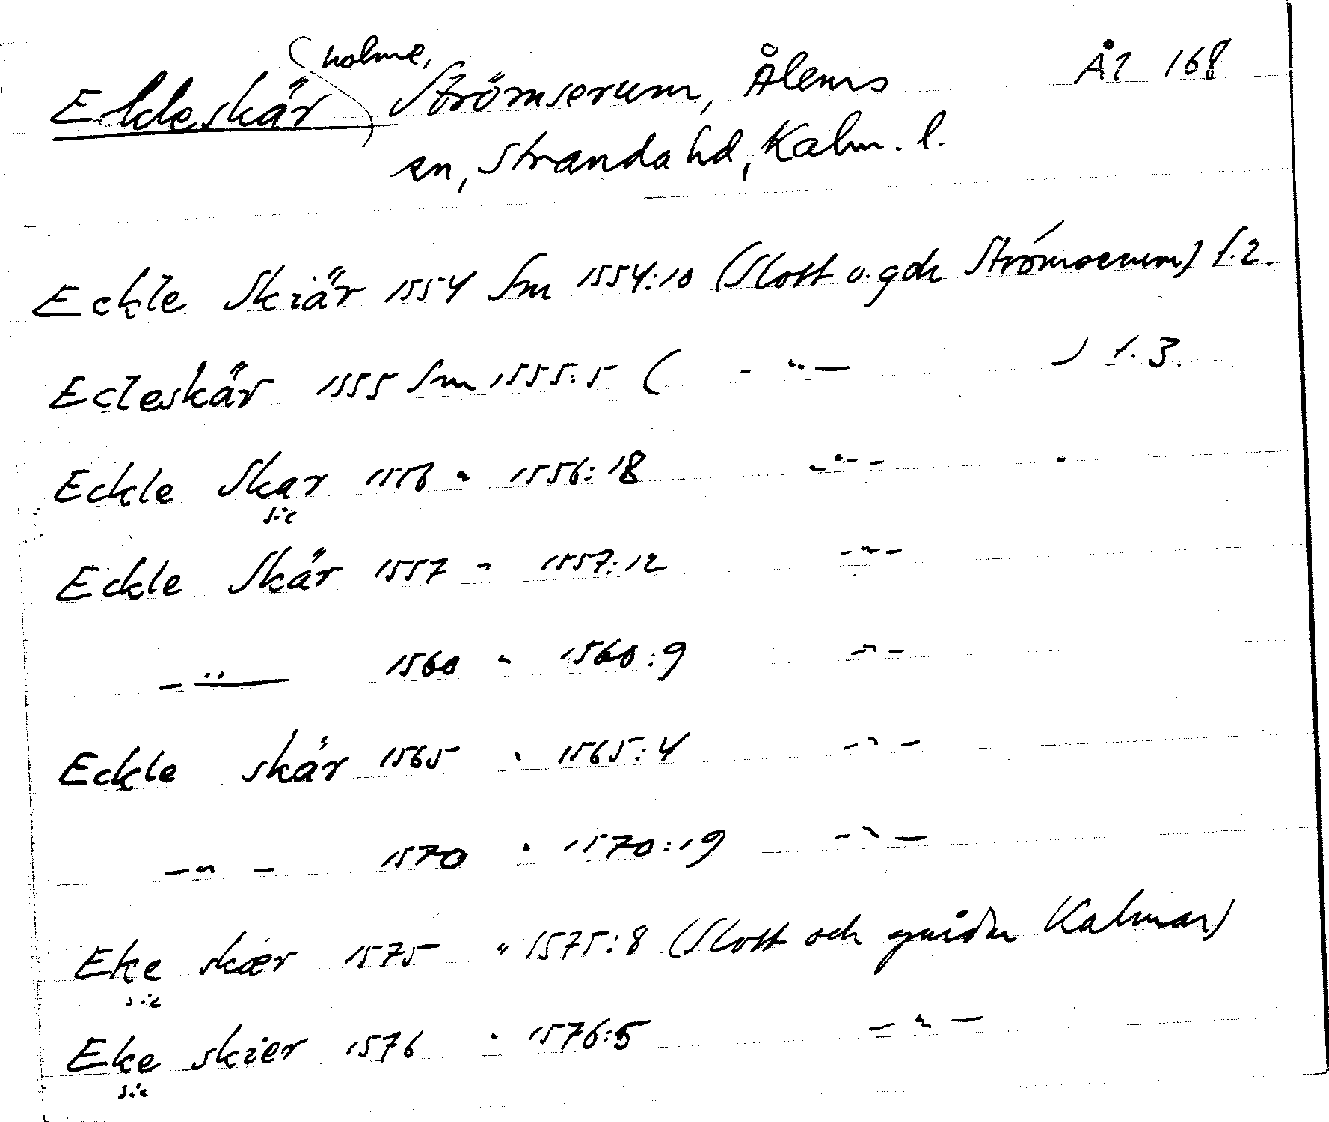 holme,
Ekleskär Strömserum, Ålems Ål 168
sn, Stranda hd, Kalm. l.
Eckle Skiär 1554 Sm 1554:10 (Slott o. gdr Strömserum) f. 2.
Ecleskär 1555 Sm 1555:5 ( - " - ) f. 3.
Eckle Skar 1556 " 1556:18 - " -
sic
Eckle Skär 1557 " 1557:12 - " -
- " - 1560 " 1560:9 - " -
Eckle skär 1565 " 1565:4 - " -
- " - 1570 " 1570:19 - " -
Eke skær 1575 " 1575:8 (Slott och gårdar Kalmar)
sic
Eke skier 1576 " 1576:5 - " -
sic